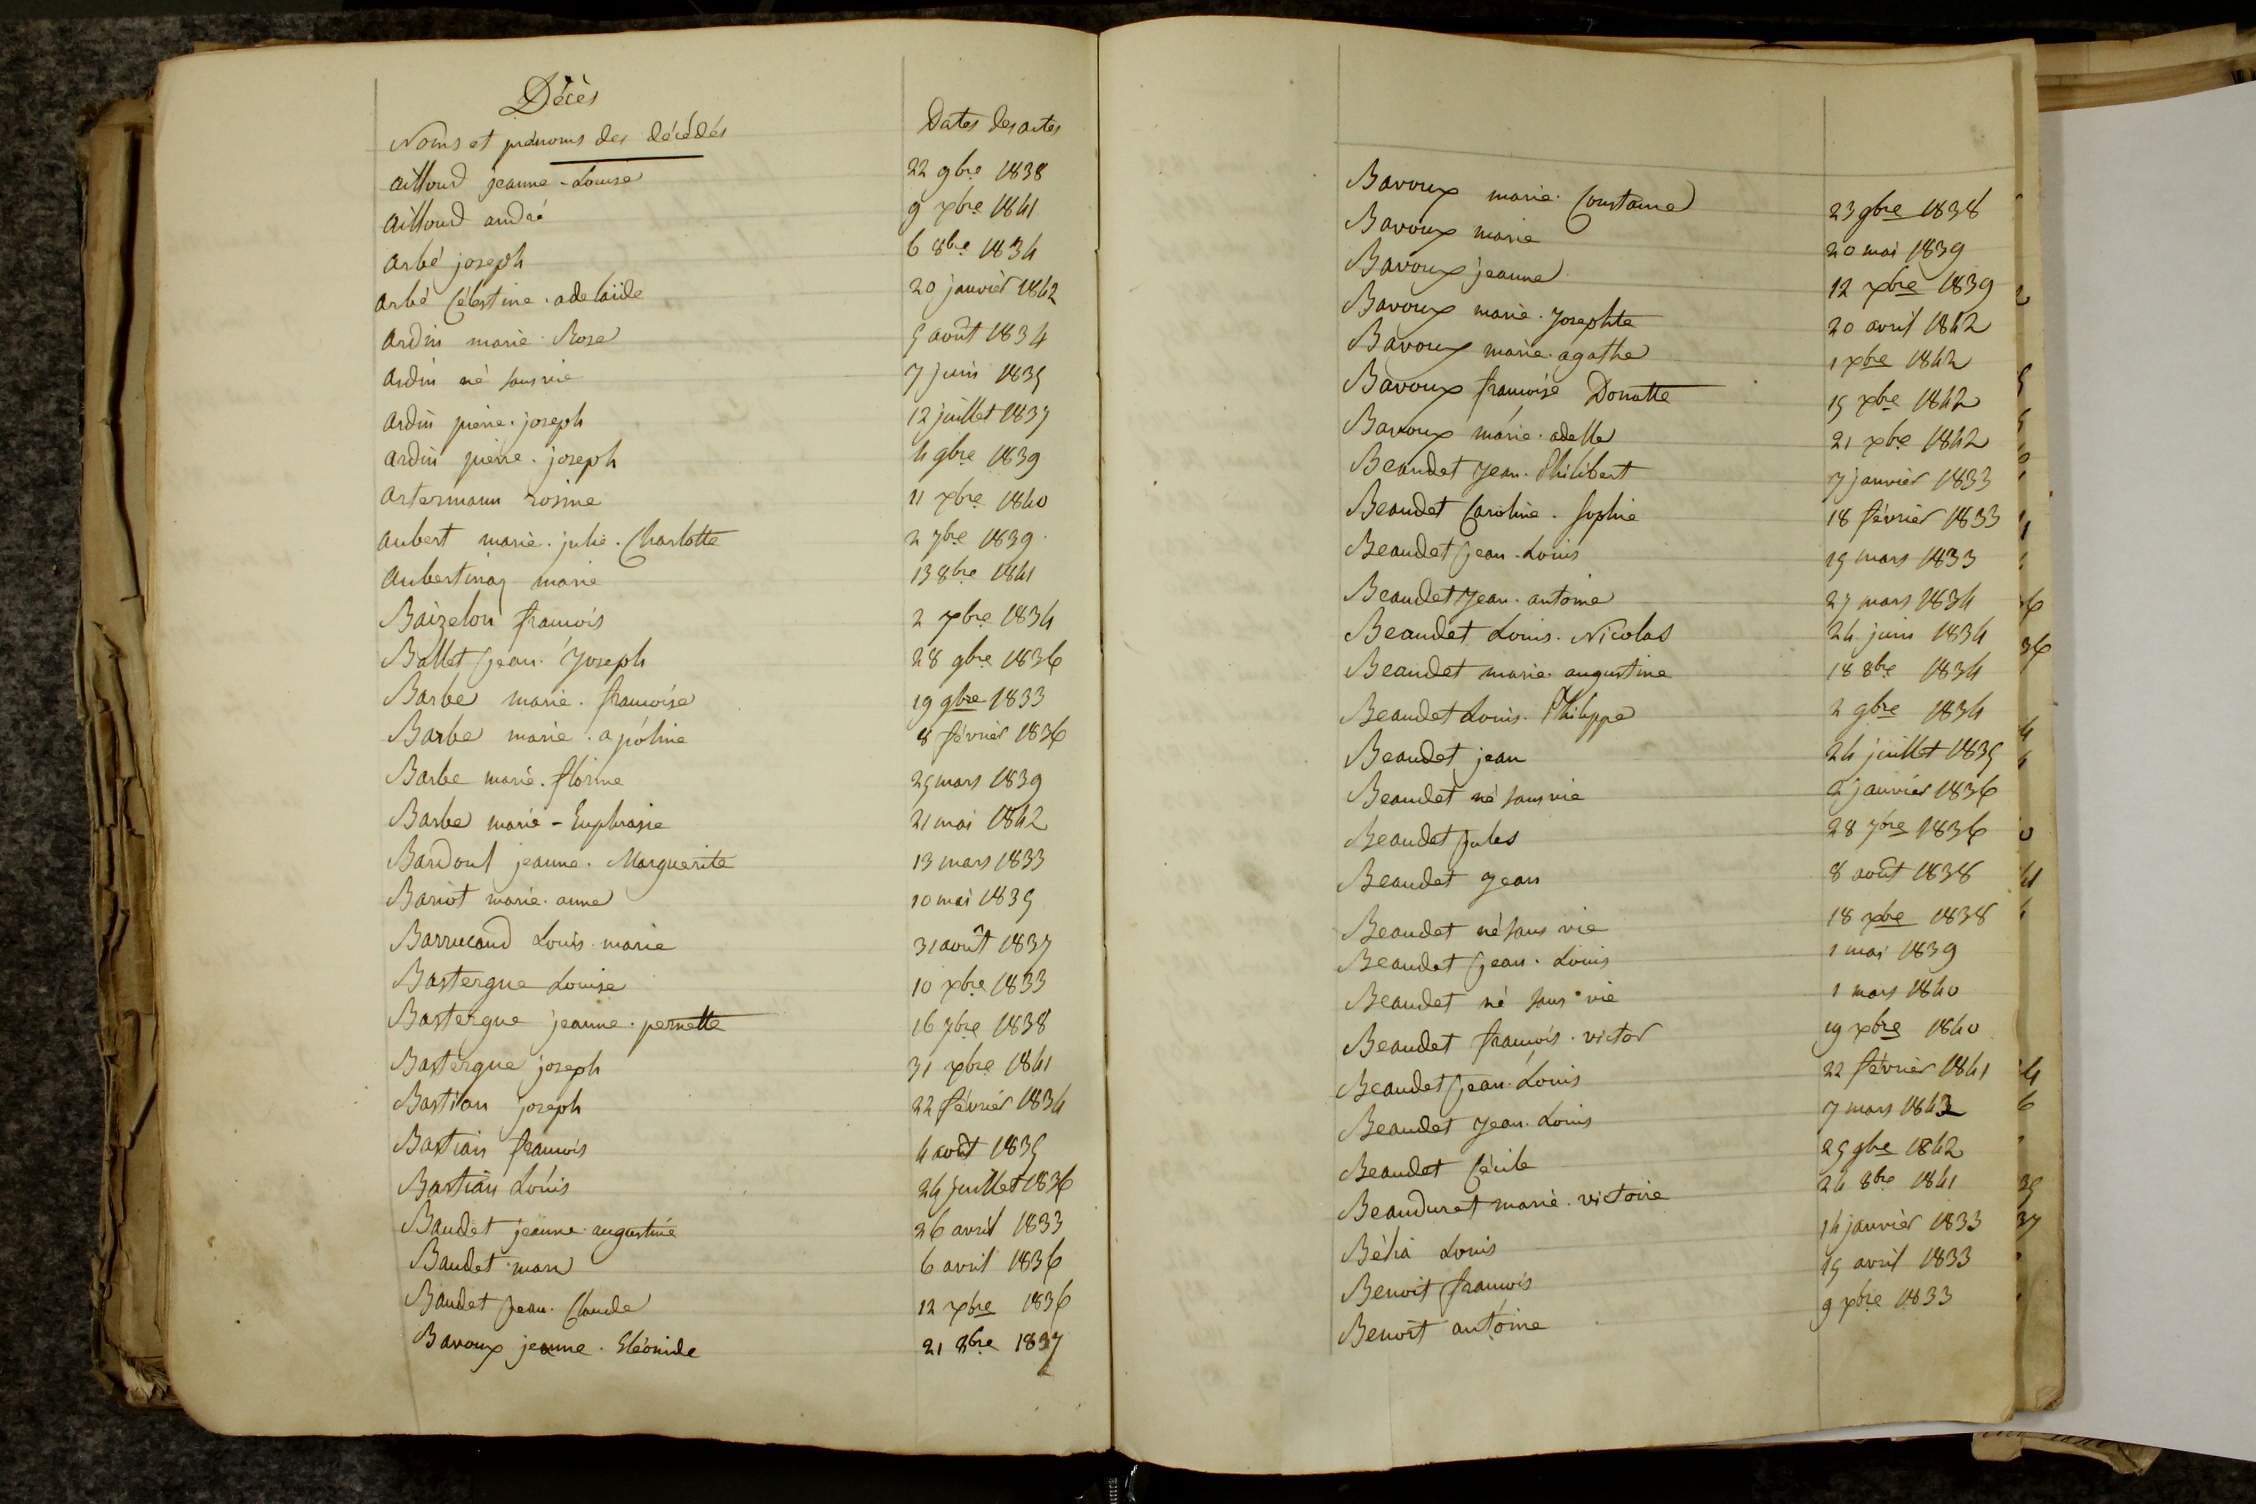 Décès
Noms et prénoms des décédés Dates des actes
ailloud jeanne-Louise 22 9bre 1838
ailloud andré 9 xbre 1841
arbé joseph 6 8bre 1834
arbé Célestine. adelaïde 20 janvier 1842
ardin marie Rose 5 août 1834
ardin né sans vie 7 juin 1835
ardin pierre. joseph 12 juillet 1837
ardin pierre. joseph 4 9bre 1839
artermann rosine 11 xbre 1840
aubert marie. julie. Charlotte 2 7bre 1839
aubertinaz marie 13 8bre 1841
Baizelon francois 2 xbre 1834
Ballet jean. Joseph 28 9bre 1836
Barbe marie. francoise 19 9bre 1833
Barbe marie. apoline 8 février 1836
Barbe marie. florine 25 mars 1839
Barbe marie-Euphrasie 21 mai 1842
Bardoul jeanne. Marguerite 13 mars 1833
Bariot marie. anne 10 mai 1835
Barrucand Louis. marie 31 août 1837
Bastergue Louise 10 xbre 1833
Bastergue jeanne. pernette 16 7bre 1838
Bastergue joseph 31 xbre 1841
Bastian joseph 22 février 1834
Bastian francois 4 août 1835
Bastian Louis 24 juillet 1836
Baudet jeanne. augustine 26 avril 1833
Baudet marc 6 avril 1836
Baudet Jean. Claude 12 xbre 1836
Bavoux jeanne. Eléonide 21 8bre 1837
Bavoux marie. Constance 23 9bre 1838
Bavoux marie 20 mai 1839
Bavoux jeanne 12 xbre 1839
Bavoux marie. Josephte 20 avril 1842
Bavoux marie. agathe 1 xbre 1842
Bavoux francoise Donatte 15 xbre 1842
Bavoux marie. adelle 21 xbre 1842
Beaudet Jean. Philibert 7 janvier 1833
Beaudet Caroline. Sophie 18 février 1833
Beaudet Jean. Louis 15 mars 1833
Beaudet Jean. antoine 27 mars 1834
Beaudet Louis. Nicolas 24 juin 1834
Beaudet marie. augustine 18 8bre 1834
Beaudet Louis. Philippe 2 9bre 1834
Beaudet jean 24 juillet 1835
Beaudet né sans vie 2 janvier 1836
Beaudet Jules 28 7bre 1836
Beaudet Jean 8 août 1838
Beaudet né sans vie 18 xbre 1838
Beaudet Jean. Louis 1 mai 1839
Beaudet né sans vie 1 mars 1840
Beaudet francois. victor 19 xbre 1840
Beaudet Jean. Louis 22 février 1841
Beaudet Jean. Louis 7 mars 1842
Beaudet Cécile 25 9bre 1842
Beauduret marie. victoire 24 8bre 1841
Bélia Louis 14 janvier 1833
Benoit francois 15 avril 1833
Benoit antoine 9 xbre 1833